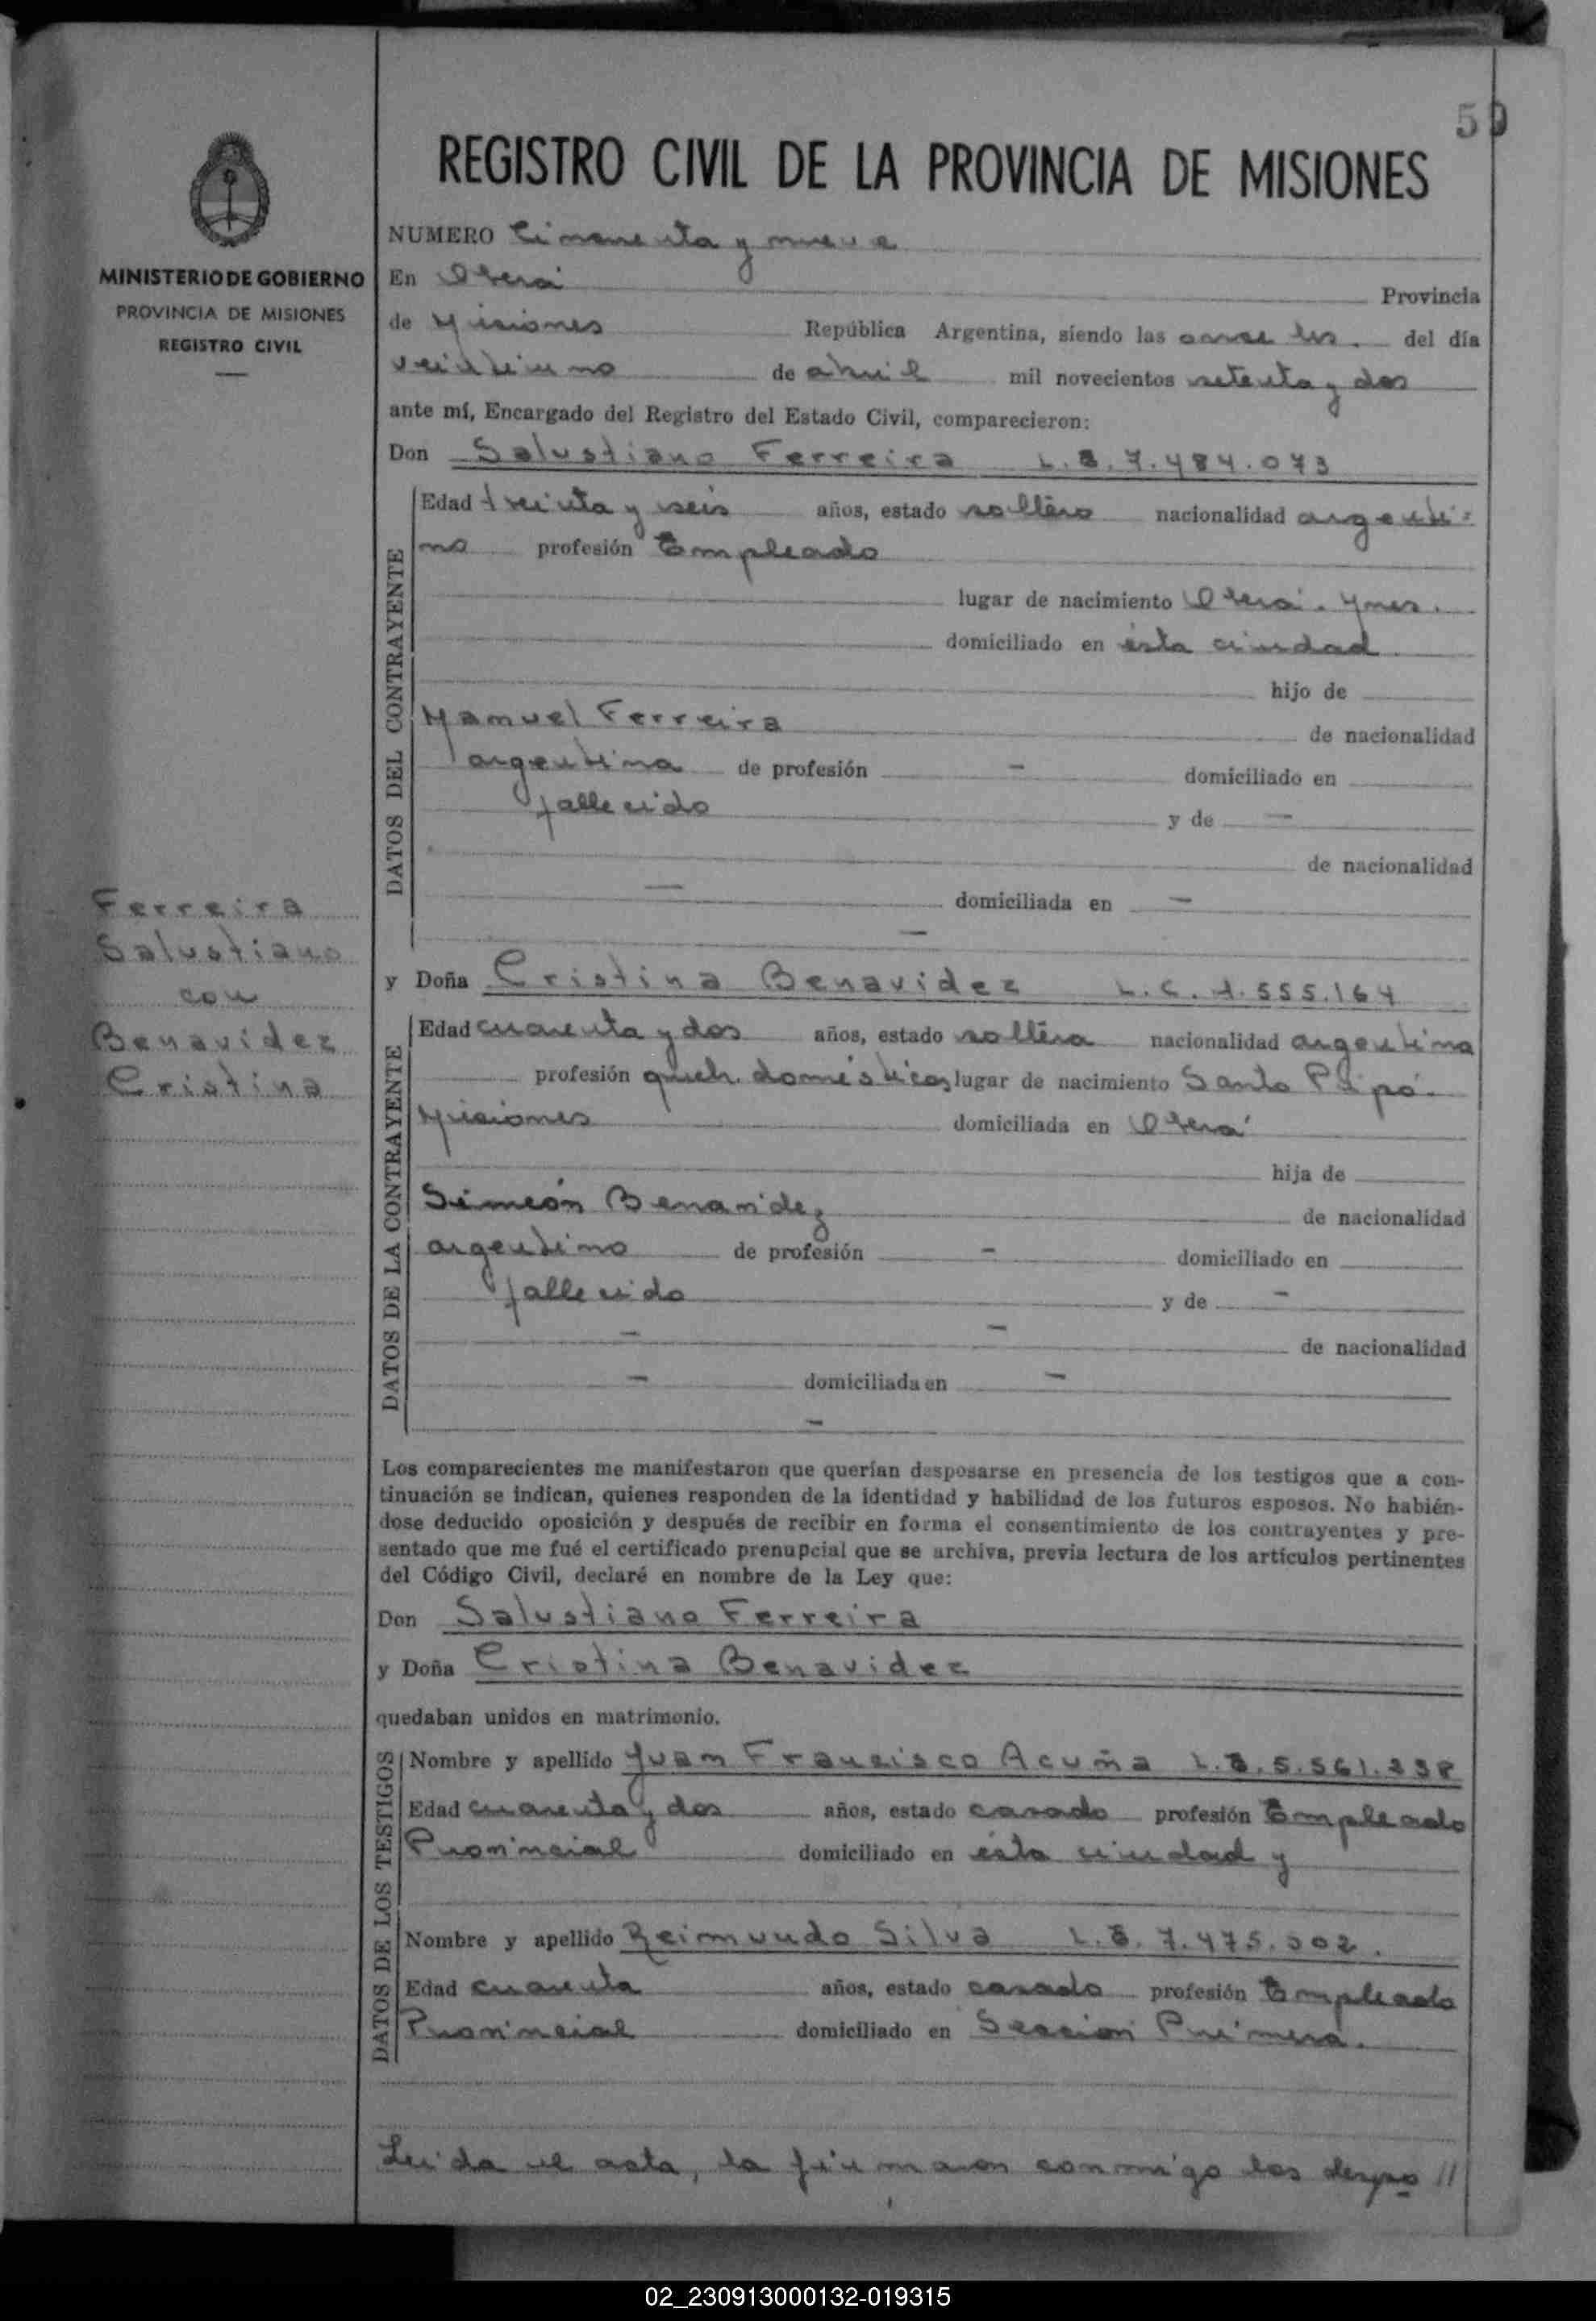 59
REGISTRO CIVIL DE LA PROVINCIA DE MISIONES
MINISTERIO DE GOBIERNO
PROVINCIA DE MISIONES
REGISTRO CIVIL
NUMERO Cincuenta y nueve
En Oberá Provincia
de Misiones República Argentina, siendo las once hs. del día
veintiuno de abril mil novecientos setenta y dos
ante mí, Encargado del Registro del Estado Civil, comparecieron:
Don Salustiano Ferreira L.E. 7.484.073
DATOS DEL CONTRAYENTE
Edad treinta y seis años, estado soltero nacionalidad argenti-
no profesión Empleado
lugar de nacimiento Oberá. Mnes.
domiciliado en ésta ciudad
hijo de
Manuel Ferreira de nacionalidad
argentina de profesión - domiciliado en
fallecido y de -
de nacionalidad
- domiciliada en -
-
Ferreira
Salustiano
con
Benavidez
Cristina
y Doña Cristina Benavidez L.C. 1.555.164
DATOS DE LA CONTRAYENTE
Edad cuarenta y dos años, estado soltera nacionalidad argentina
profesión queh. domésticos lugar de nacimiento Santo Pipó-
Misiones domiciliada en Oberá
hija de
Simeón Benavidez de nacionalidad
argentino de profesión - domiciliado en
fallecido y de -
- - de nacionalidad
- domiciliada en -
-
Los comparecientes me manifestaron que querían desposarse en presencia de los testigos que a con-
tinuación se indican, quienes responden de la identidad y habilidad de los futuros esposos. No habién-
dose deducido oposición y después de recibir en forma el consentimiento de los contrayentes y pre-
sentado que me fué el certificado prenupcial que se archiva, previa lectura de los artículos pertinentes
del Código Civil, declaré en nombre de la Ley que:
Don Salustiano Ferreira
y Doña Cristina Benavidez
quedaban unidos en matrimonio.
DATOS DE LOS TESTIGOS
Nombre y apellido Juan Francisco Acuña L.E. 5.561.238
Edad cuarenta y dos años, estado casado profesión Empleado
Provincial domiciliado en ésta ciudad y
Nombre y apellido Reimundo Silva L.E. 7.475.002.
Edad cuarenta años, estado casado profesión Empleado
Provincial domiciliado en Sección Primera.
Leida el acta, la firmaron conmigo los despo //
02_230913000132-019315